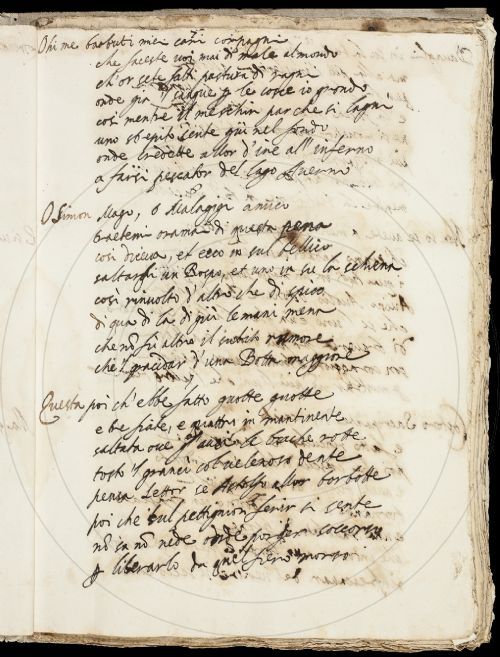 Ohi me barbuti miei cari compagni
che faceste voi mai di male al mondo
ch'or sete fatti pastura di ragni
onde già cinque le coscie io grondo
così mentre il meschin par che si lagni
uno strepito sente qui nel fondo
onde credette allor d'ire all'inferno
a farsi pescator del lago Averno
O Simon Mago, o Malagigi amico
traetemi oramai di questa pena
così diceva, et ecco in sul bellico
saltargli un Rospo, et uno in su la schena
così rinvolto d'altro che di spico
di qua di la di giù le mani mena
che nõ fu altro il subito rumore
che'l gracidar d'una Botta maggiore
Questa poi ch'ebbe fatto quotte quotte
e be fiate, e quattro in mantinente
saltata ove le buche rotte
tosto'l col velenoso dente
pensa Lettor se Astolfo allor borbotte
poi che sul pettignion ferir si sente
nõ sa nõ vede onde porger soccorso
p liberarlo da quel fiero morso